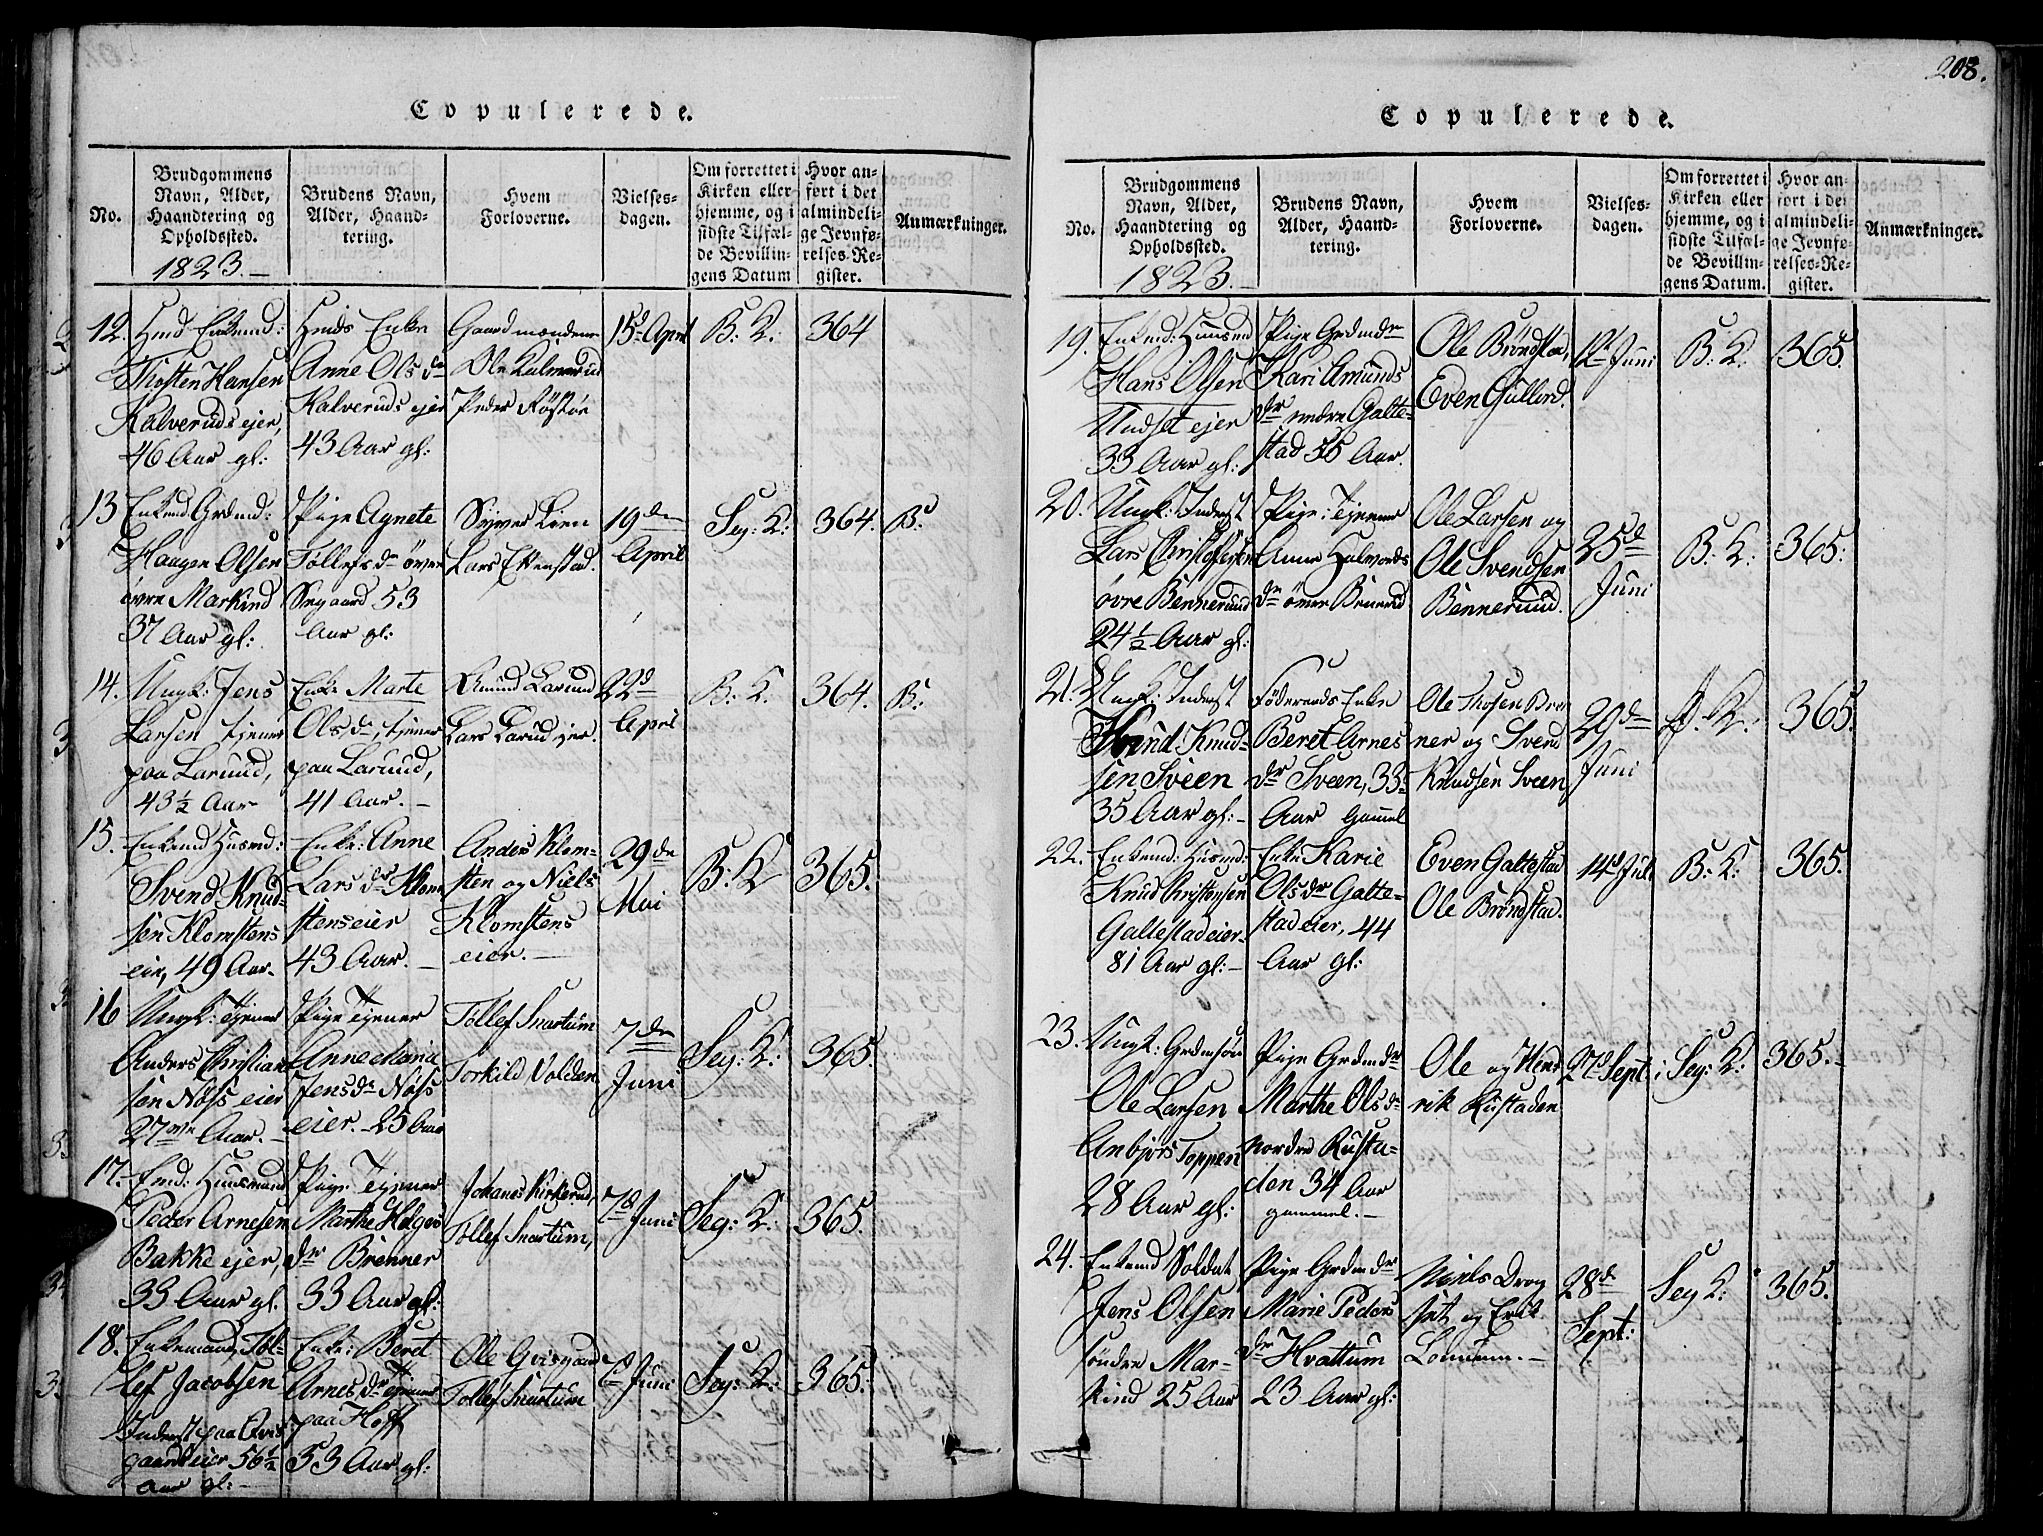 Copulerede.
No.
Brudgommens
Navn, Alder,
Haandtering og
Opholdssted.
1823.
Brudens Navn,
Alder, Haand-
tering.
Hvem
Forloverne.
Vielses-
dagen.
Om forrettet i
Kirken eller
hjemme, og i
sidste Tilfæl-
de Bevillin-
gens Datum
Hvor an-
ført i det
almindeli-
ge Jevnfø-
relses-Re-
gister.
Anmærkninger.
12.
Thosten Hansen
Kalveruds ejer,
46 Aar gl:
Enke
Anne Olsdr
Kalveruds ejer
43 Aar gl:
Gaardmændene
Ole Kalverud
Peder Røstøe
15d April
B: K:
364
13
Enkemd Grdmd:
Haagen Olsen
øvre Markind
37 Aar gl:
Pige Agnete
Tollefsdr øvre
Segaard 53
Aar gl:
Syver Lien
Lars Ekenstad.
19de
April
Seg: K:
364.
B:
14.
Ungk: Jens
Larsen tjener
paa Larund,
43½ Aar
Enke Marte
Olsdr, tjener
paa Larund,
41 Aar.
Amund Larund
Lars Larud ejer.
22d
April
B: K:
364.
B:
15.
Enkemd Husmd:
Svend Knud-
sen Klomstens
eier, 49 Aar.
Enke: Anne
Larsdr Klom
stens eier
43 Aar.
Anders Klom-
sten og Niels
Klomstens
eier.
29de
Mai
B: K
365.
16
Ungk: tjener
Anders Christian
sen Nøss eier
27 Aar.
Pige Tjener
Anne Maria
Jensdr Nøss
eier. 25 Aar
Tollef Snartum
Torkild Volden
7de
Juni
Seg: K:
365.
17.
Emd: Huusmand
Peder Arnesen
Bakke ejer,
33 Aar gl.
Pige Tjener
Marthe Helges
dr Brenner
33 Aar gl:
Johanes Kirkerud,
Tollef Snartum,
7d Juni
Seg: K:
365.
18.
Enkemand Tol-
lef Jacobsen
Inderst paa Qvis
gaard eier 56½
Aar gl:
Enke: Beret
Arnesdr tjener
paa Hoff
53 Aar gl:
Ole Qvisgaard
Tollef Snartum
7d Juni
Seg: K:
365.
208.
Copulerede.
No.
Brudgommens
Navn, Alder,
Haandtering og
Opholdssted.
1823.
Brudens Navn,
Alder, Haand-
tering.
Hvem
Forloverne.
Vielses-
dagen.
Om forrettet i
Kirken eller
hjemme, og i
sidste Tilfæl-
de Bevillin-
gens Datum.
Hvor an-
ført i det
almindeli-
ge Jevnfø-
relses-Re-
gister.
Anmærkninger.
19.
Enkemd: Huusmd
Hans Olsen
Udset ejer
33 Aar gl:
Pige Grdmdr
Kari Amunds
dr nedre Galte-
stad 35 Aar.
Ole Brøndstad,
Even Gullord.
12te Juni
B: K.
365.
20.
Ungk: Inderst
Lars Christophersen
øvre Bennerund
24½ Aar gl:
Pige: Tjener
Anne Halvords
dr øvre Benerud
Ole Larsen og
Ole Svendsen
Bennerund.
25d
Juni
B. K.
365.
21.
Ungk: Inderst
Svend Knud-
sen Sveen
35 Aar gl:
Føderaads Enke
Beret Arnes
dr Sveen, 33
Aar gammel
Ole Thosen Bren
ner og Svend
Knudsen Sveen
29de
Juni
K:
365.
22.
Enkemd: Husmd:
Knud Christensen
Galtestad eier
81 Aar gl:
Enke Karie
Olsdr Galte-
stad eier, 44
Aar gl:
Even Galtestad
Ole Brøndstad.
14d Juli
B: K:
365.
23.
Ungk: Grdmsøn
Ole Larsen
Anbjørs Toppen
28 Aar gl:
Pige Grdmdr
Marthe Olsdr
nordre Rusta-
den 34 Aar
gammel.
Ole og Hen
rik Rustaden
27d Sept:
Seg: K:
365.
24.
Enkemd Soldat
Jens Olsen
søndre Mar-
kind 25 Aar
Pige Grdmdr
Marie Peders
dr Hvattum
23 Aar gl:
Niels Drog
set og Erik
Lomsum.
28d
Sept:
Seg K:
365.